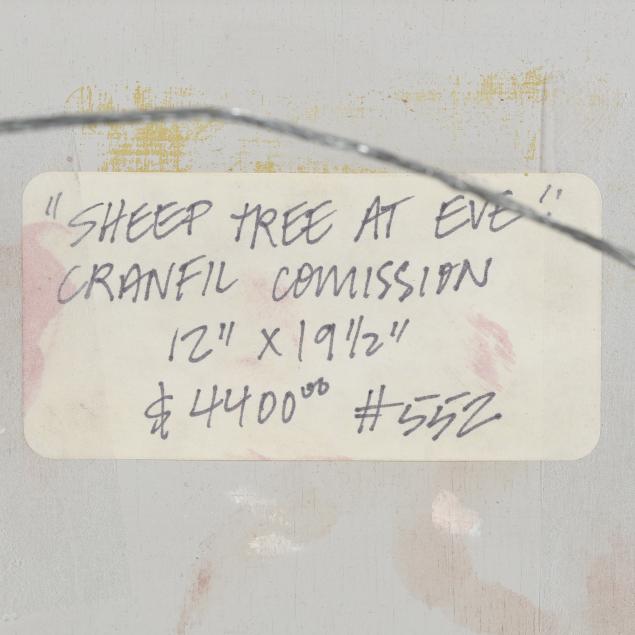 "SHEEP TREE AT EVE"
CRANFIL COMISSION
12" X 19 1/2"
$4400.00 #552